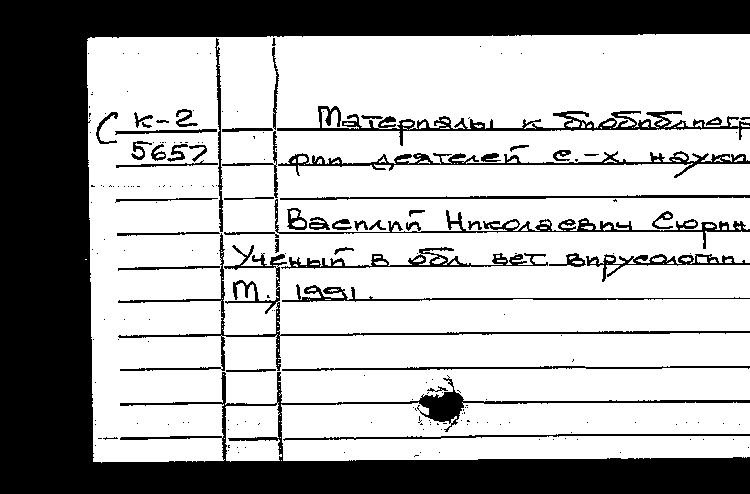 С К-2 Материалы к биобиблиогр
5657 фии деятелей с.-х. науки
Василий Николаевич Сюрин
Ученый в обл. вет. вирусологии.
М., 1991.